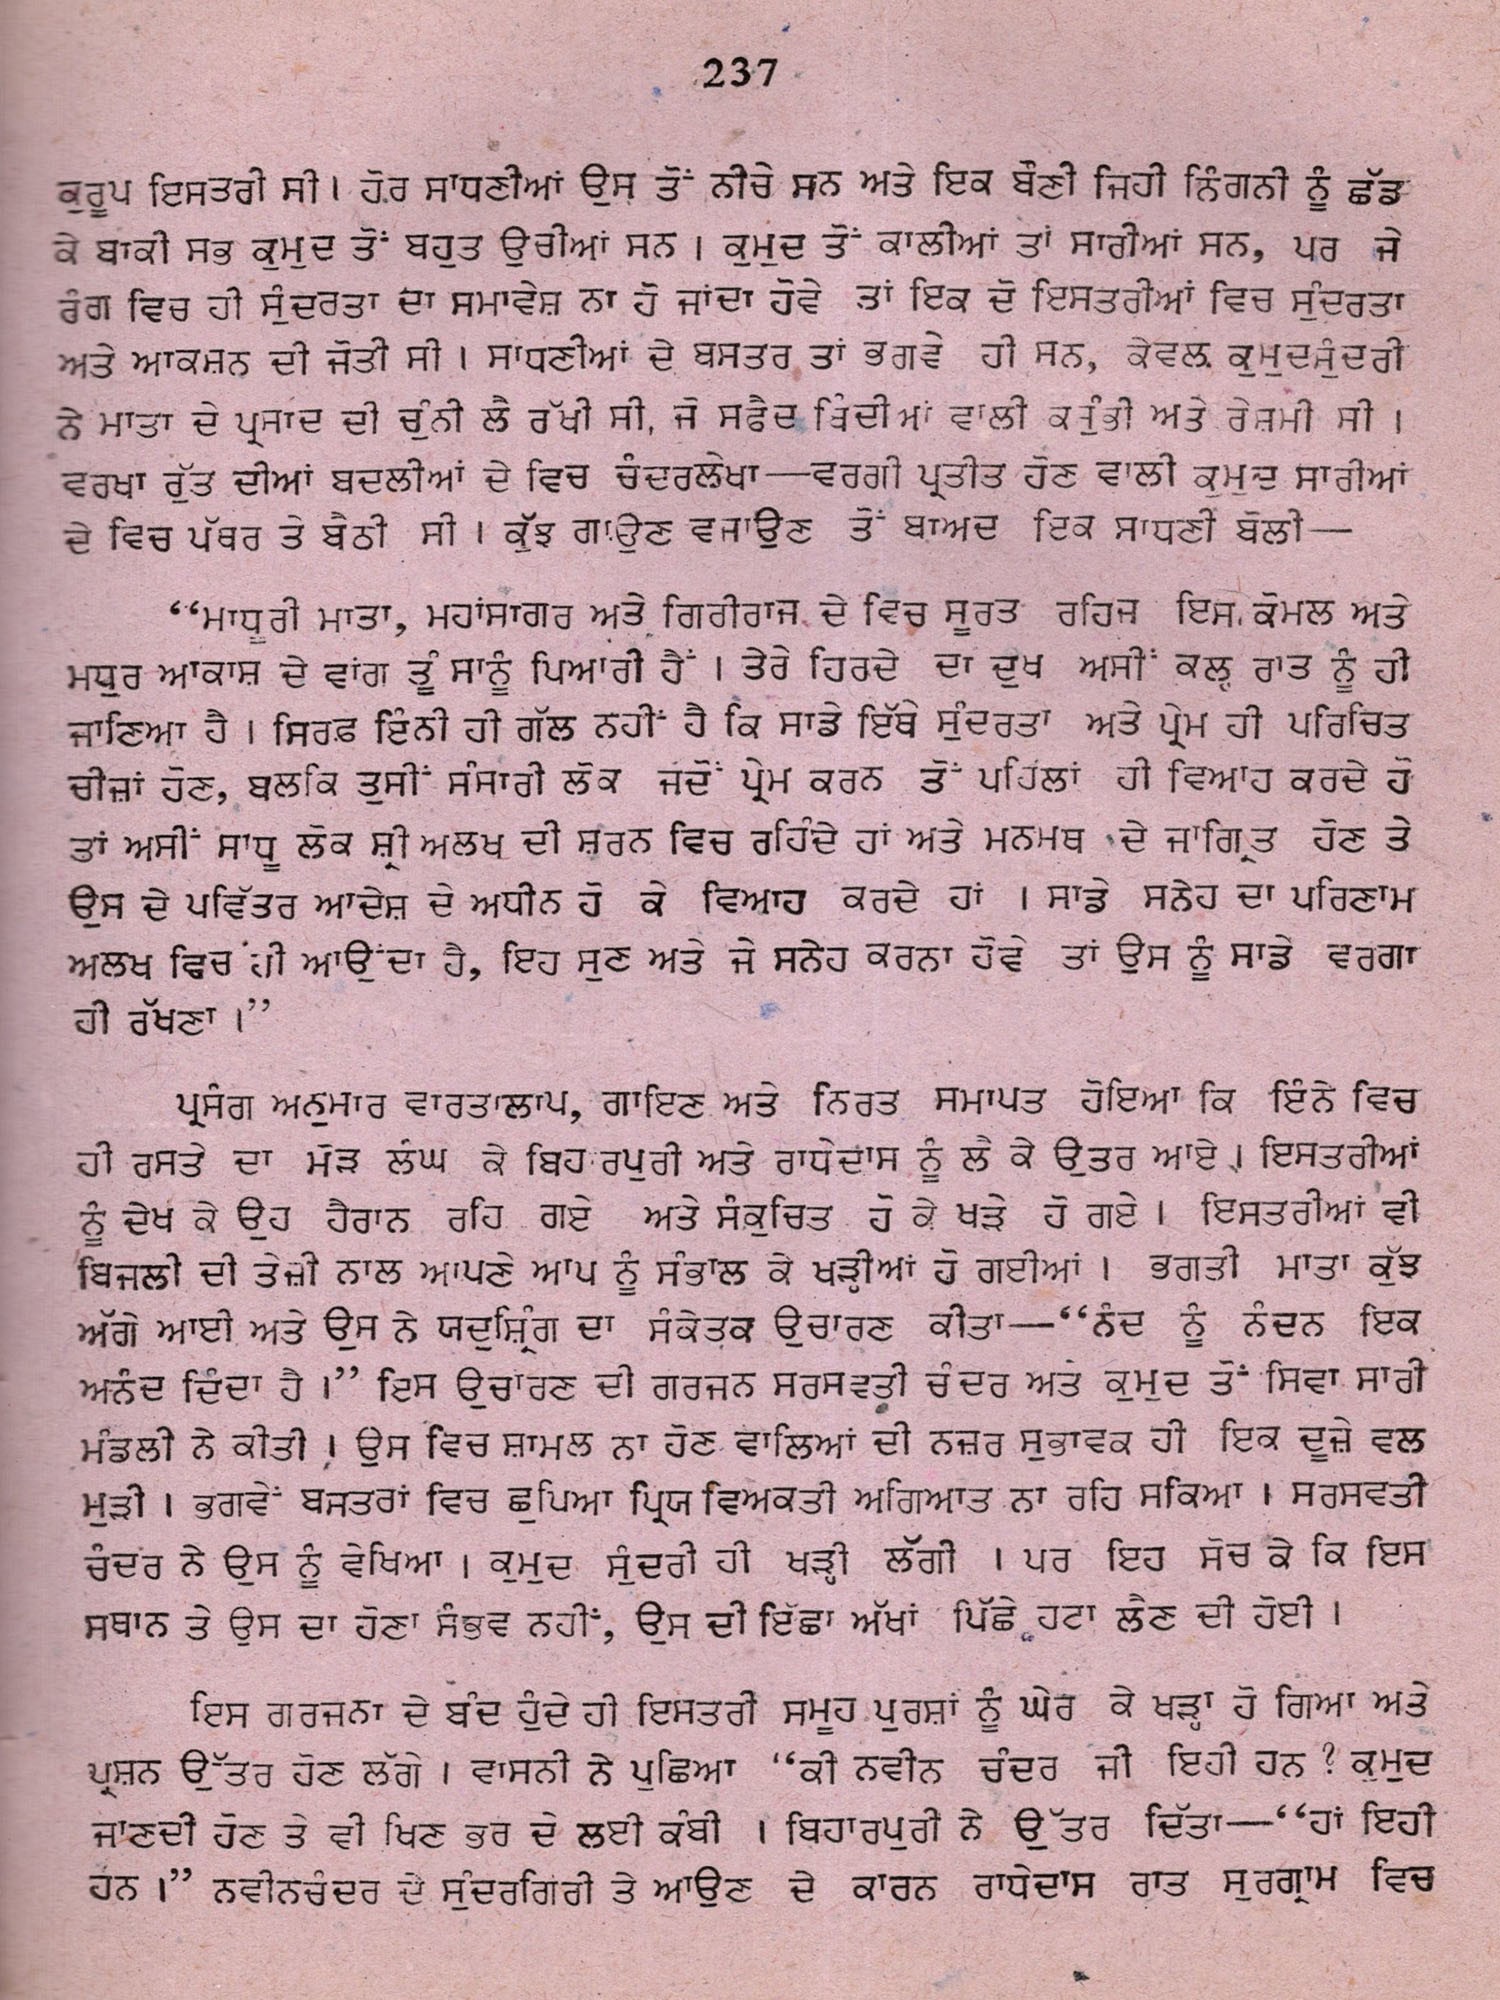 237
ਕੁਰੂਪ ਇਸਤਰੀ ਸੀ। ਹੋਰ ਸਾਧਣੀਆਂ ਉਸ ਤੋਂ ਨੀਚੇ ਸਨ ਅਤੇ ਇਕ ਬੌਣੀ ਜਿਹੀ ਨਿੰਗਨੀ ਨੂੰ ਛੱਡ
ਕੇ ਬਾਕੀ ਸਭ ਕੁਮੁਦ ਤੋਂ ਬਹੁਤ ਉਚੀਆਂ ਸਨ। ਕੁਮੁਦ ਤੋਂ ਕਾਲੀਆਂ ਤਾਂ ਸਾਰੀਆਂ ਸਨ, ਪਰ ਜੇ
ਰੰਗ ਵਿਚ ਹੀ ਸੁੰਦਰਤਾ ਦਾ ਸਮਾਵੇਸ਼ ਨਾ ਹੋ ਜਾਂਦਾ ਹੋਵੇ ਤਾਂ ਇਕ ਦੋ ਇਸਤਰੀਆਂ ਵਿਚ ਸੁੰਦਰਤਾ
ਅਤੇ ਆਕਸ਼ਨ ਦੀ ਜੋਤੀ ਸੀ। ਸਾਧਣੀਆਂ ਦੇ ਬਸਤਰ ਤਾਂ ਭਗਵੇ ਹੀ ਸਨ, ਕੇਵਲ ਕੁਮੁਦਸੁੰਦਰੀ
ਨੇ ਮਾਤਾ ਦੇ ਪ੍ਰਸਾਦ ਦੀ ਚੁੰਨੀ ਲੈ ਰੱਖੀ ਸੀ, ਜੋ ਸਫੈਦ ਬਿੰਦੀਆਂ ਵਾਲੀ ਕਸੁੰਭੀ ਅਤੇ ਰੇਸ਼ਮੀ ਸੀ।
ਵਰਖਾ ਰੁੱਤ ਦੀਆਂ ਬਦਲੀਆਂ ਦੇ ਵਿਚ ਚੰਦਰਲੇਖਾ—ਵਰਗੀ ਪ੍ਰਤੀਤ ਹੋਣ ਵਾਲੀ ਕੁਮੁਦ ਸਾਰੀਆਂ
ਦੇ ਵਿਚ ਪੱਥਰ ਤੇ ਬੈਠੀ ਸੀ। ਕੁੱਝ ਗਾਉਣ ਵਜਾਉਣ ਤੋਂ ਬਾਅਦ ਇਕ ਸਾਧਣੀ ਬੋਲੀ—
“ਮਾਧੁਰੀ ਮਾਤਾ, ਮਹਾਂਸਾਗਰ ਅਤੇ ਗਿਰੀਰਾਜ ਦੇ ਵਿਚ ਸੂਰਤ ਰਹਿਜ ਇਸ ਕੋਮਲ ਅਤੇ
ਮਧੁਰ ਆਕਾਸ਼ ਦੇ ਵਾਂਗ ਤੂੰ ਸਾਨੂੰ ਪਿਆਰੀ ਹੈਂ। ਤੇਰੇ ਹਿਰਦੇ ਦਾ ਦੁਖ ਅਸੀਂ ਕਲ੍ਹ ਰਾਤ ਨੂੰ ਹੀ
ਜਾਣਿਆ ਹੈ। ਸਿਰਫ਼ ਇੰਨੀ ਹੀ ਗੱਲ ਨਹੀਂ ਹੈ ਕਿ ਸਾਡੇ ਇੱਥੇ ਸੁੰਦਰਤਾ ਅਤੇ ਪ੍ਰੇਮ ਹੀ ਪਰਿਚਿਤ
ਚੀਜ਼ਾਂ ਹੋਣ, ਬਲਕਿ ਤੁਸੀਂ ਸੰਸਾਰੀ ਲੋਕ ਜਦੋਂ ਪ੍ਰੇਮ ਕਰਨ ਤੋਂ ਪਹਿਲਾਂ ਹੀ ਵਿਆਹ ਕਰਦੇ ਹੋ
ਤਾਂ ਅਸੀਂ ਸਾਧੂ ਲੋਕ ਸ਼੍ਰੀ ਅਲਖ ਦੀ ਸ਼ਰਨ ਵਿਚ ਰਹਿੰਦੇ ਹਾਂ ਅਤੇ ਮਨਮਥ ਦੇ ਜਾਗ੍ਰਿਤ ਹੋਣ ਤੇ
ਉਸ ਦੇ ਪਵਿੱਤਰ ਆਦੇਸ਼ ਦੇ ਅਧੀਨ ਹੋ ਕੇ ਵਿਆਹ ਕਰਦੇ ਹਾਂ। ਸਾਡੇ ਸਨੇਹ ਦਾ ਪਰਿਣਾਮ
ਅਲਖ ਵਿਚ ਹੀ ਆਉਂਦਾ ਹੈ, ਇਹ ਸੁਣ ਅਤੇ ਜੇ ਸਨੇਹ ਕਰਨਾ ਹੋਵੇ ਤਾਂ ਉਸ ਨੂੰ ਸਾਡੇ ਵਰਗਾ
ਹੀ ਰੱਖਣਾ।”
ਪ੍ਰਸੰਗ ਅਨੁਸਾਰ ਵਾਰਤਾਲਾਪ, ਗਾਇਣ ਅਤੇ ਨਿਰਤ ਸਮਾਪਤ ਹੋਇਆ ਕਿ ਇੰਨੇ ਵਿਚ
ਹੀ ਰਸਤੇ ਦਾ ਮੋੜ ਲੰਘ ਕੇ ਬਿਹਾਰਪੁਰੀ ਅਤੇ ਰਾਧੇਦਾਸ ਨੂੰ ਲੈ ਕੇ ਉਤਰ ਆਏ। ਇਸਤਰੀਆਂ
ਨੂੰ ਦੇਖ ਕੇ ਉਹ ਹੈਰਾਨ ਰਹਿ ਗਏ ਅਤੇ ਸੰਕੁਚਿਤ ਹੋ ਕੇ ਖੜੇ ਹੋ ਗਏ। ਇਸਤਰੀਆਂ ਵੀ
ਬਿਜਲੀ ਦੀ ਤੇਜ਼ੀ ਨਾਲ ਆਪਣੇ ਆਪ ਨੂੰ ਸੰਭਾਲ ਕੇ ਖੜ੍ਹੀਆਂ ਹੋ ਗਈਆਂ। ਭਗਤੀ ਮਾਤਾ ਕੁੱਝ
ਅੱਗੇ ਆਈ ਅਤੇ ਉਸ ਨੇ ਯਦੁਸ਼੍ਰਿੰਗ ਦਾ ਸੰਕੇਤਕ ਉਚਾਰਣ ਕੀਤਾ—“ਨੰਦ ਨੂੰ ਨੰਦਨ ਇਕ
ਅਨੰਦ ਦਿੰਦਾ ਹੈ।” ਇਸ ਉਚਾਰਣ ਦੀ ਗਰਜਨ ਸਰਸਵਤੀ ਚੰਦਰ ਅਤੇ ਕੁਮੁਦ ਤੋਂ ਸਿਵਾ ਸਾਰੀ
ਮੰਡਲੀ ਨੇ ਕੀਤੀ। ਉਸ ਵਿਚ ਸ਼ਾਮਲ ਨਾ ਹੋਣ ਵਾਲਿਆਂ ਦੀ ਨਜ਼ਰ ਸੁਭਾਵਕ ਹੀ ਇਕ ਦੂਜ਼ੇ ਵਲ
ਮੁੜੀ। ਭਗਵੇਂ ਬਸਤਰਾਂ ਵਿਚ ਛੁਪਿਆ ਪ੍ਰਿਯ ਵਿਅਕਤੀ ਅਗਿਆਤ ਨਾ ਰਹਿ ਸਕਿਆ। ਸਰਸਵਤੀ
ਚੰਦਰ ਨੇ ਉਸ ਨੂੰ ਵੇਖਿਆ। ਕੁਮੁਦ ਸੁੰਦਰੀ ਹੀ ਖੜ੍ਹੀ ਲੱਗੀ। ਪਰ ਇਹ ਸੋਚ ਕੇ ਕਿ ਇਸ
ਸਥਾਨ ਤੇ ਉਸ ਦਾ ਹੋਣਾ ਸੰਭਵ ਨਹੀਂ, ਉਸ ਦੀ ਇੱਛਾ ਅੱਖਾਂ ਪਿੱਛੇ ਹਟਾ ਲੈਣ ਦੀ ਹੋਈ।
ਇਸ ਗਰਜਨਾ ਦੇ ਬੰਦ ਹੁੰਦੇ ਹੀ ਇਸਤਰੀ ਸਮੂਹ ਪੁਰਸ਼ਾਂ ਨੂੰ ਘੇਰ ਕੇ ਖੜ੍ਹਾ ਹੋ ਗਿਆ ਅਤੇ
ਪ੍ਰਸ਼ਨ ਉੱਤਰ ਹੋਣ ਲੱਗੇ। ਵਾਸਨੀ ਨੇ ਪੁਛਿਆ “ਕੀ ਨਵੀਨ ਚੰਦਰ ਜੀ ਇਹੀ ਹਨ? ਕੁਮੁਦ
ਜਾਣਦੀ ਹੋਣ ਤੇ ਵੀ ਖਿਣ ਭਰ ਦੇ ਲਈ ਕੰਬੀ। ਬਿਹਾਰਪੁਰੀ ਨੇ ਉੱਤਰ ਦਿੱਤਾ—“ਹਾਂ ਇਹੀ
ਹਨ।” ਨਵੀਨਚੰਦਰ ਦੇ ਸੁੰਦਰਗਿਰੀ ਤੇ ਆਉਣ ਦੇ ਕਾਰਨ ਰਾਧੇਦਾਸ ਰਾਤ ਸੁਰਗ੍ਰਾਮ ਵਿਚ